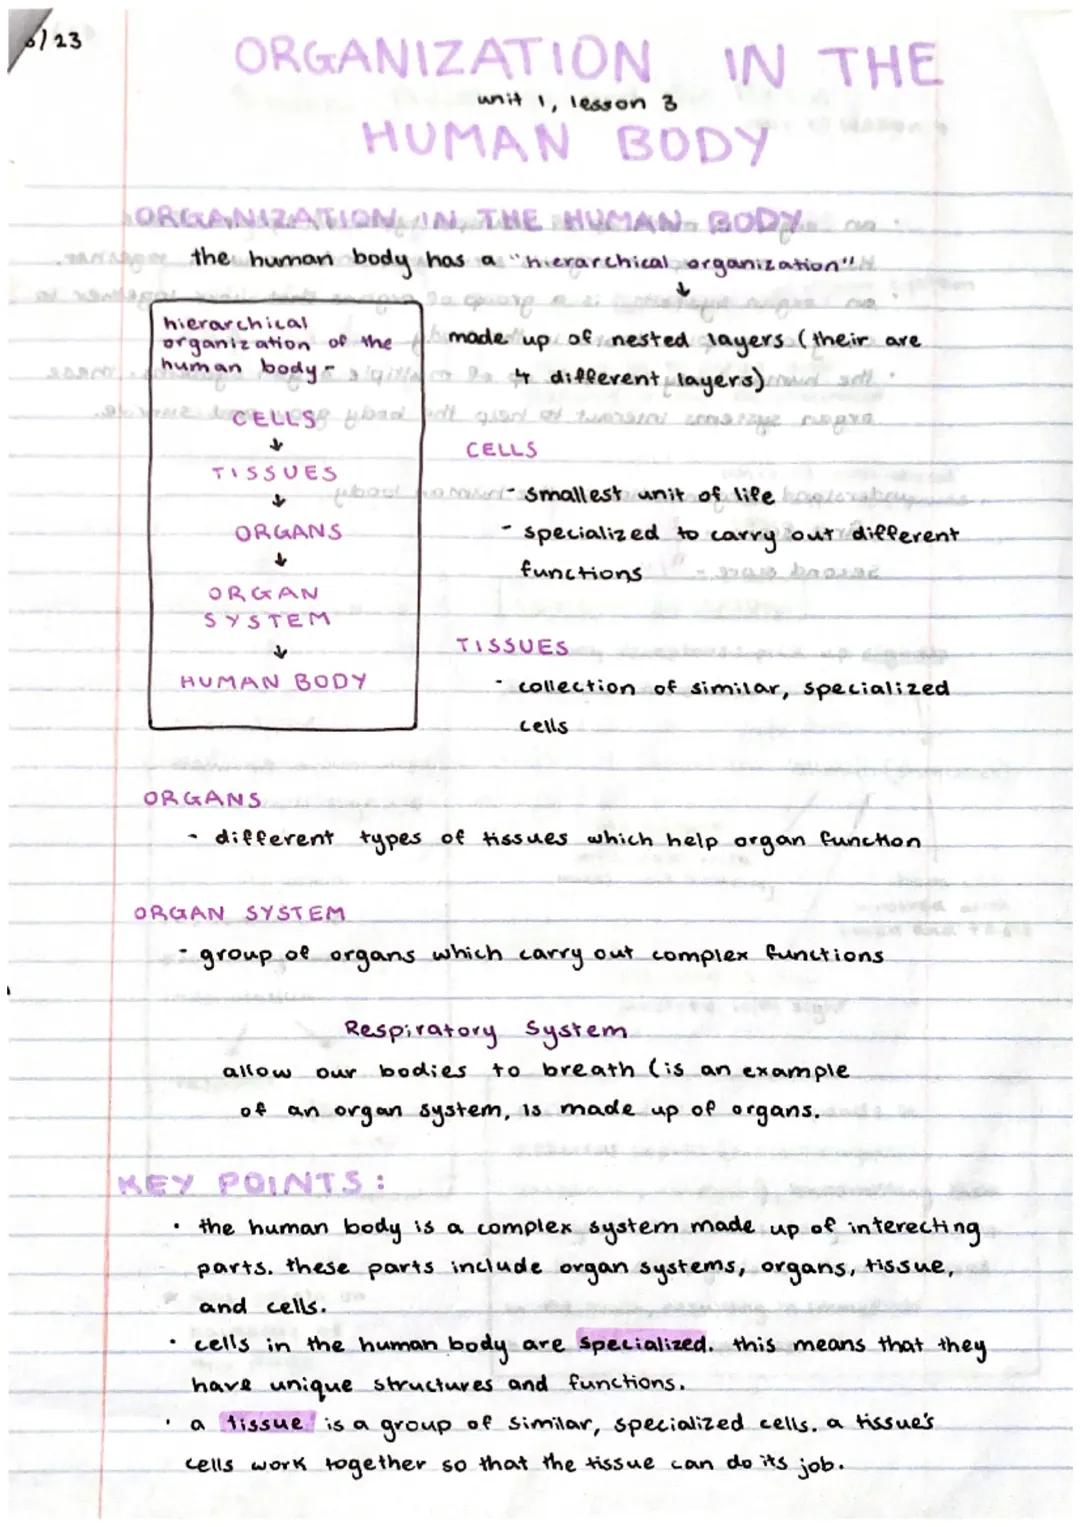 /23
ORGANIZATION IN THE
unit 1, lesson 3
HUMAN BODY
ORGANIZATION IN THE HUMAN BODY
the human body has a "hierarchical organization"
↓
hierarchical
organization of the
human body -
CELLS
↓
TISSUES
↓
ORGANS
↓
ORGAN
SYSTEM
↓
HUMAN BODY
made up of nested layers (their are
4 different layers)
CELLS
- smallest unit of life
- specialized to carry out different
functions
TISSUES
- collection of similar, specialized
cells
ORGANS
- different types of tissues which help organ function
ORGAN SYSTEM
- group of organs which carry out complex functions
Respiratory System
allow our bodies to breath (is an example
of an organ system, is made up of organs.
KEY POINTS:
• the human body is a complex system made up of interecting
parts. these parts include organ systems, organs, tissue,
and cells.
• cells in the human body are specialized. this means that they
have unique structures and functions.
• a tissue is a group of similar, specialized cells. a tissue's
cells work together so that the tissue can do its job.